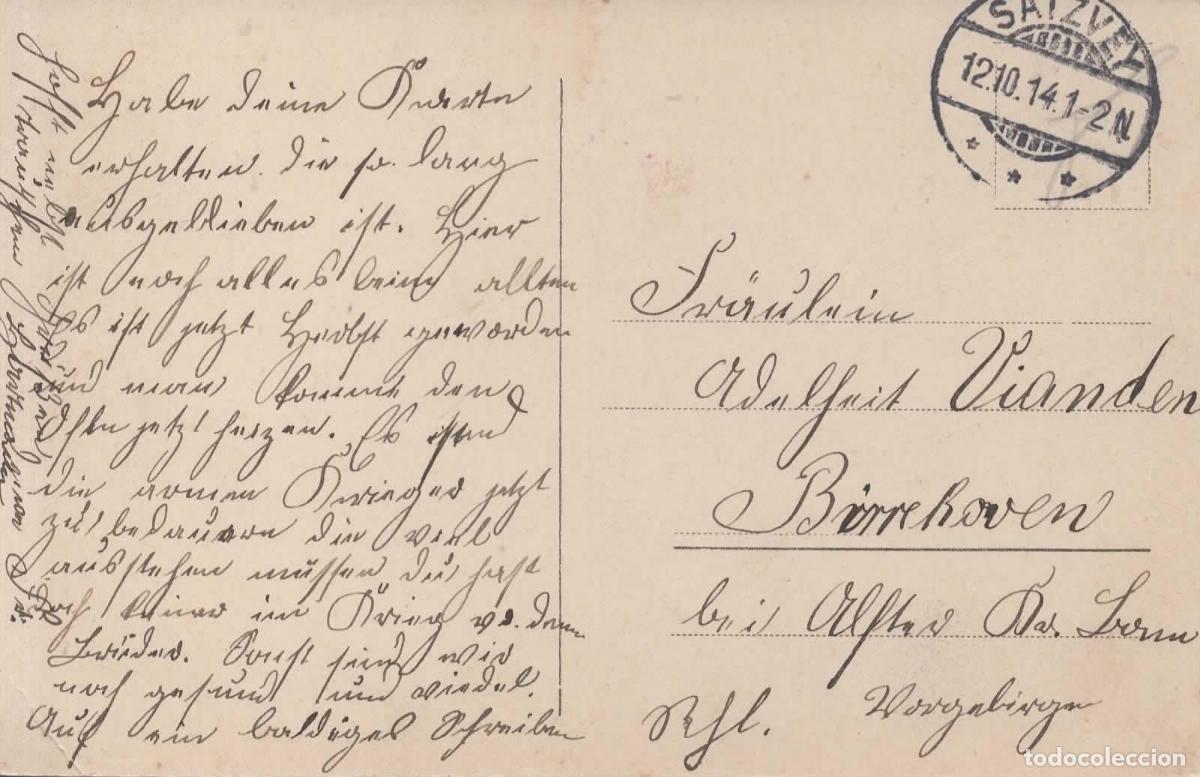 Habe deine Karte
erhalten. die so. lang
ausgeblieben ist. Hier
ist noch alles beim allten
Es ist jetzt Herbst geworden
und man konnte den
Ofen jetzt heizen. Es sind
die armen Krieger jetzt
zu bedauern die viel
ausstehen müssen, du hast
och keiner im Krieg vo. denn
Brüder. Sonst sind wir
noch gesund und wiedel.
Auf ein baldiges Schreiben
hofft nebst
SATZVEY
12.10.14.1-2N
Fräulein
Adelheit Vianden
Birrekoven
bei Alfter Kr. Bonn
Rhl. Vorgebirge
todocoleccion